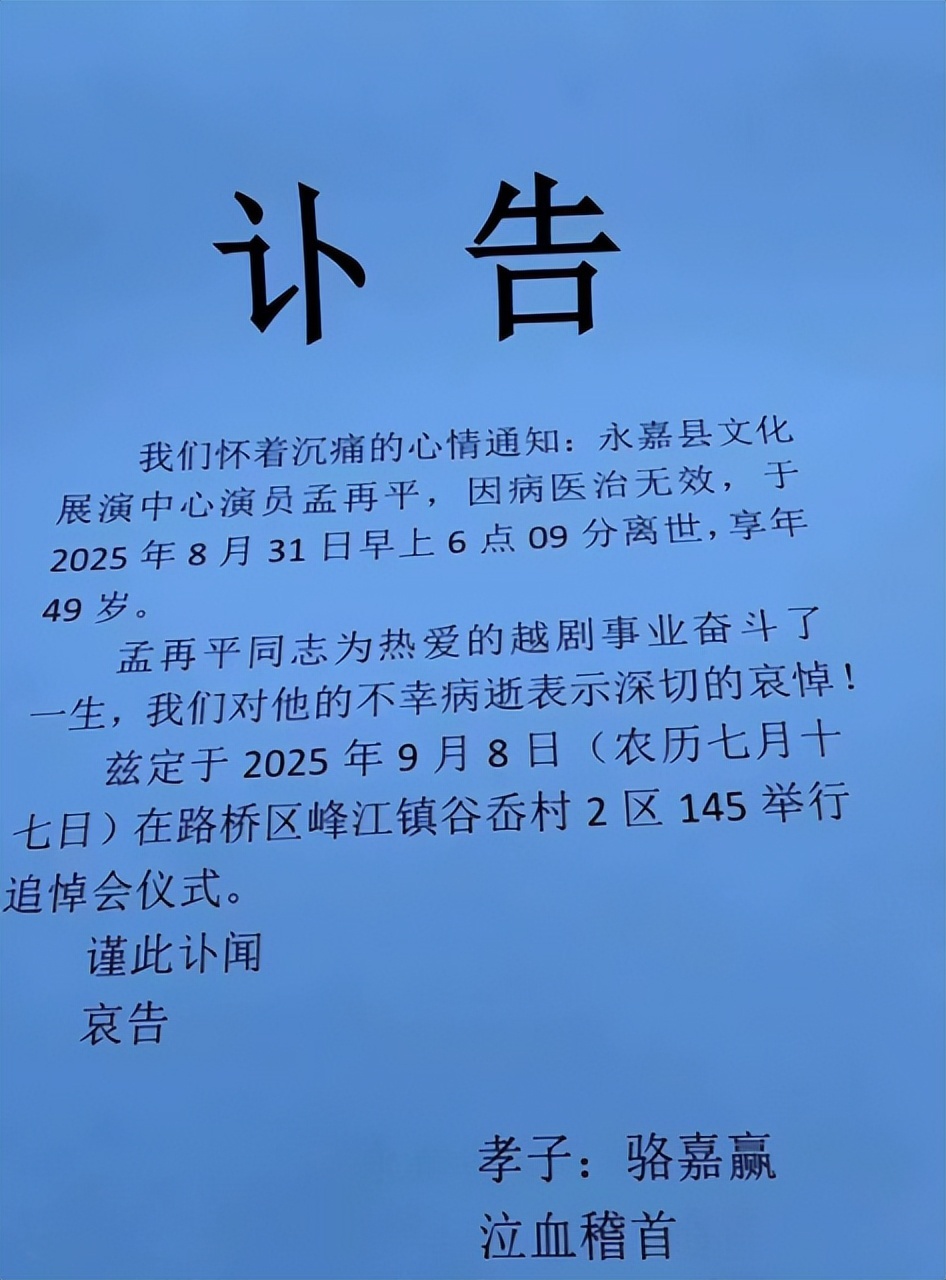 讣 告
我们怀着沉痛的心情通知：永嘉县文化
展演中心演员孟再平，因病医治无效，于
2025 年 8 月 31 日早上 6 点 09 分离世，享年
49 岁。
孟再平同志为热爱的越剧事业奋斗了
一生，我们对他的不幸病逝表示深切的哀悼！
兹定于 2025 年 9 月 8 日（农历七月十
七日）在路桥区峰江镇谷岙村 2 区 145 举行
追悼会仪式。
谨此讣闻
哀告
孝子：骆嘉赢
泣血稽首